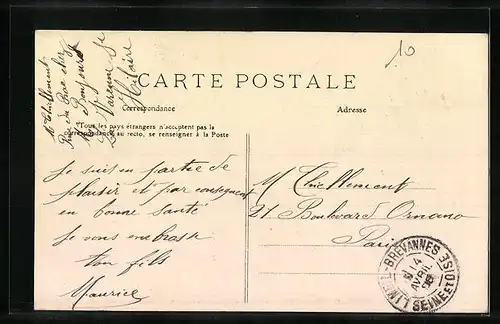 M Thiellement
Rue du Bac chez
Mr Bonjour
La Varenne St
Hilaire
10
CARTE POSTALE
Correspondance
Adresse
Tous les pays étrangers n'acceptent pas la
correspondance au recto, se renseigner à la Poste
Je suis en partie de
plaisir et par conséquent
en bonne santé
Je vous embrasse
ton fils
Maurice
M Thiellement
21 Boulevard Ornano
Paris
LIMEIL-BREVANNES
14
AVRIL
SEINE ET OISE